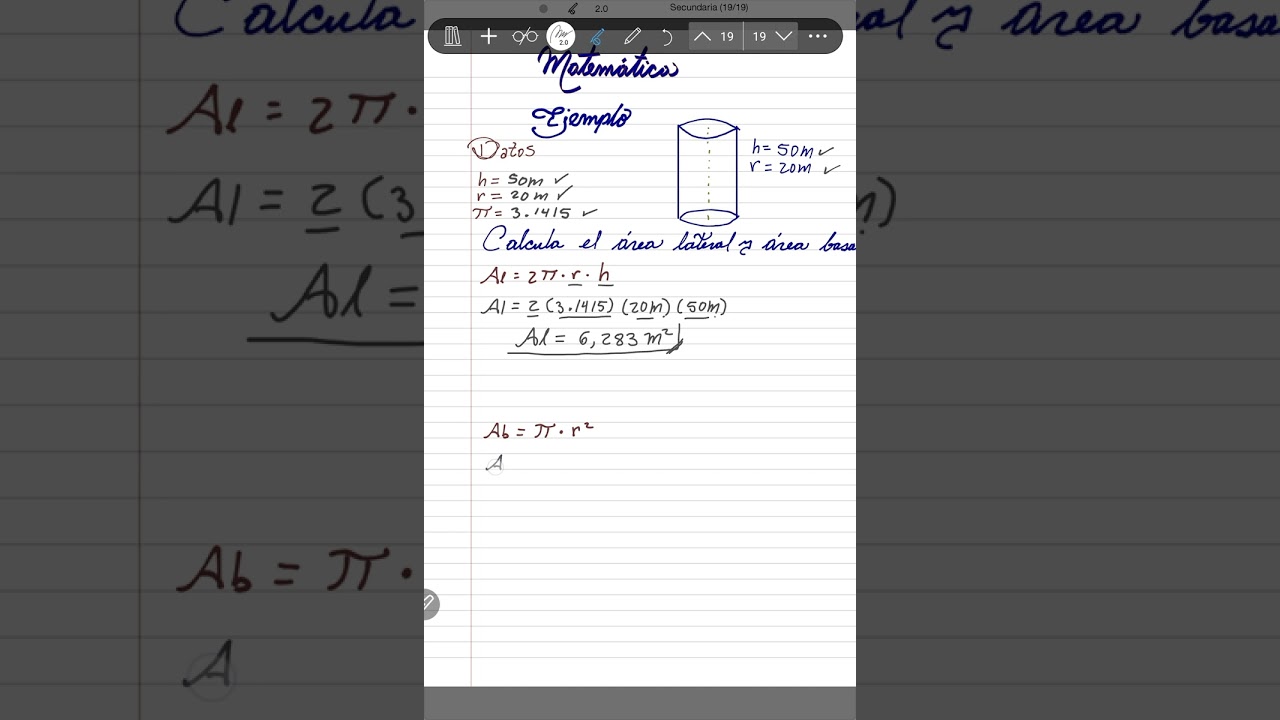 2.0 Secundaria (19/19)
2.0 19 19
Matemática
Ejemplo
Datos
h = 50m ✓
r = 20m ✓
π = 3.1415 ✓
h = 50m ✓
r = 20m ✓
Calcula el área lateral y área basa
Al = 2π · r · h
Al = 2 (3.1415) (20m) (50m)
Al = 6,283 m²
Ab = π · r²
A
Calcula
y área basa
Al = 2π ·
Al = 2 (3
)
Al =
Ab = π ·
A